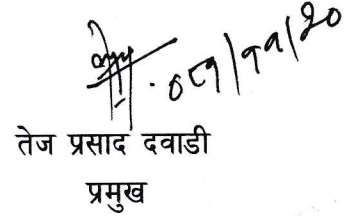 ०८१/११/२०
तेज प्रसाद दवाडी
प्रमुख